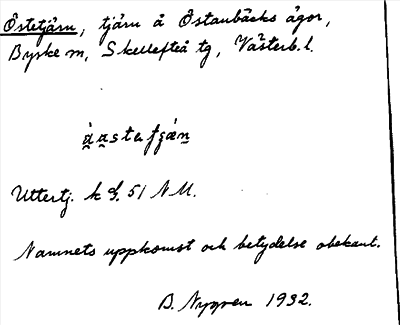 Östetjärn, tjärn å Östanbäcks ägor,
Byske sn, Skellefteå tg, Västerb. l.
Uttertj. k bl. 51 N.U.
Namnets uppkomst och betydelse obekant.
B. Nygren 1932.